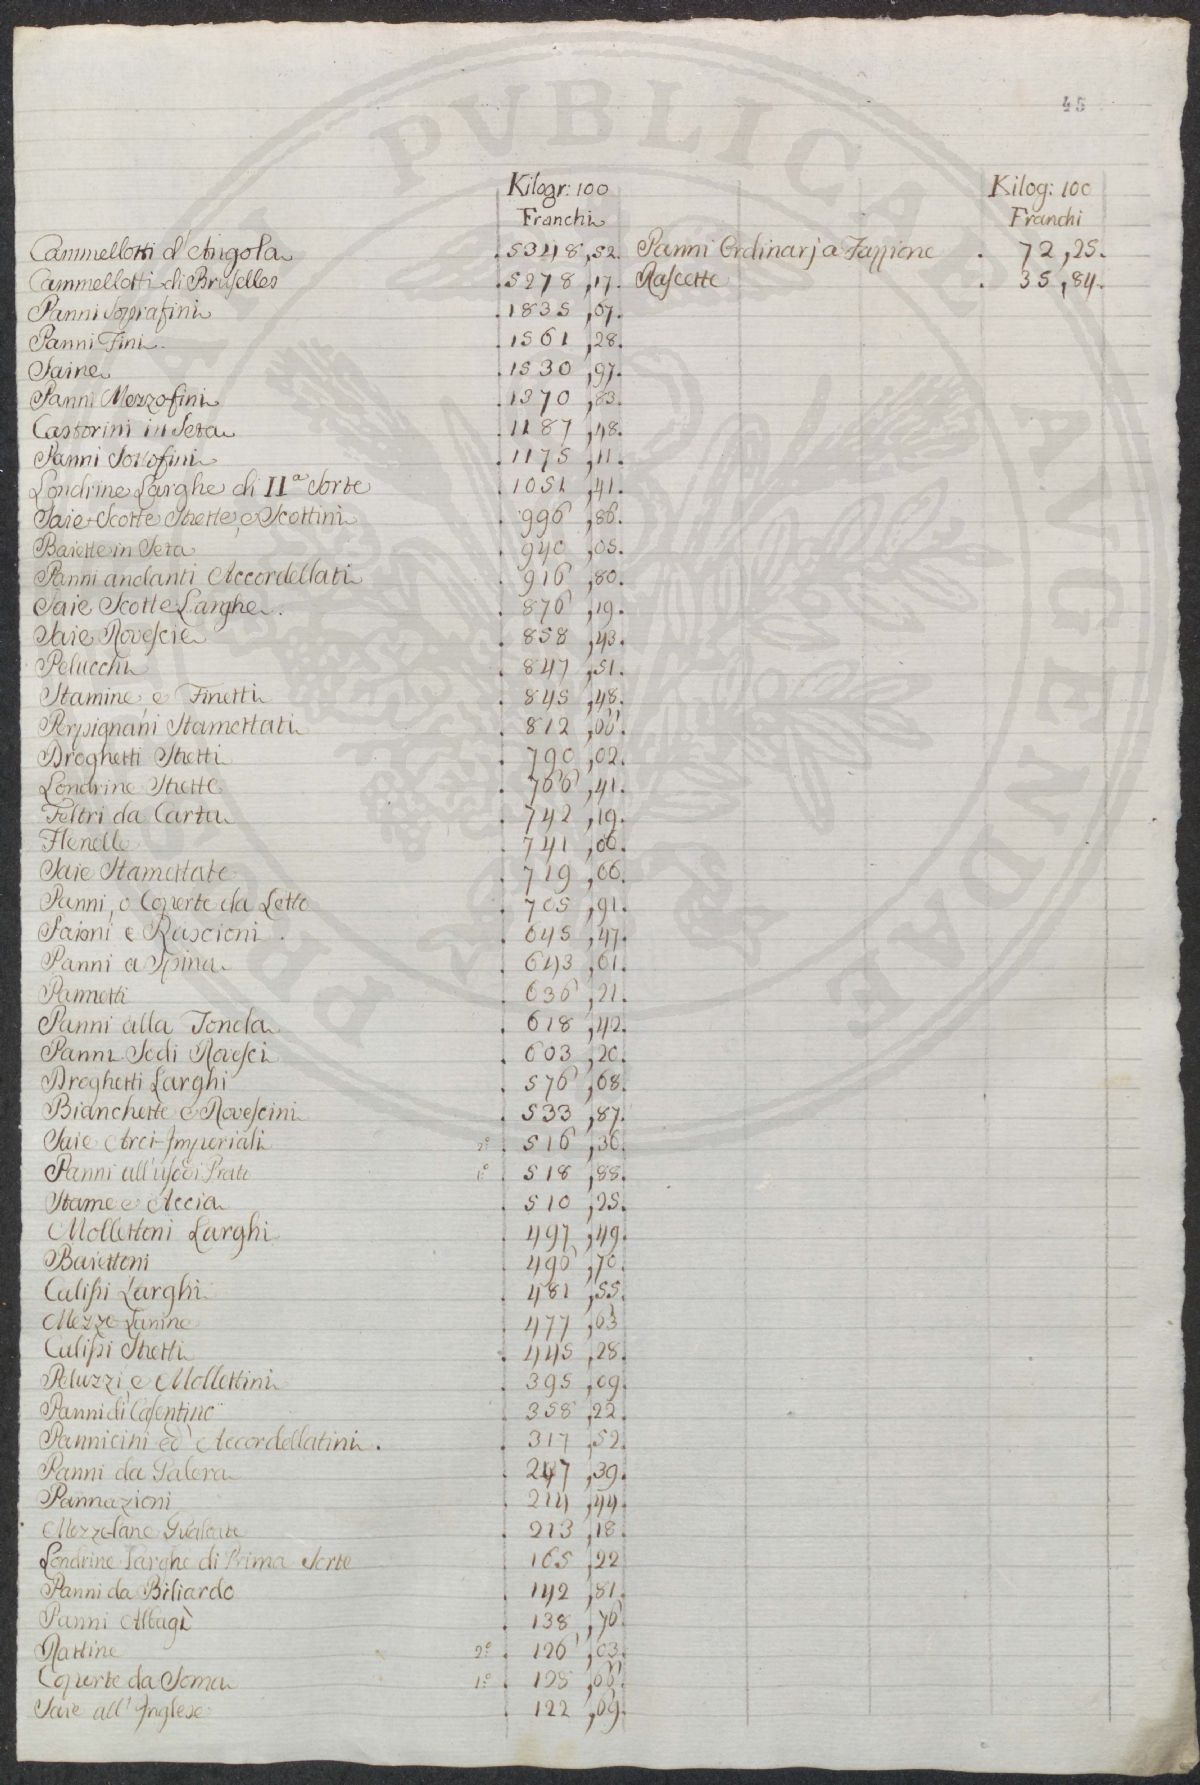 45
Kilogr: 100
Franchi
Cammellotti d'Angola 5348,52.
Cammellotti di Bruselles 5278,17.
Panni Soprafini 1835,67.
Panni Fini 1561,28.
Saine 1530,97.
Panni Mezzofini 1370,83.
Castorini in Seta 1187,48.
Panni Sottofini 1175,11.
Londrine Larghe di IIa Sorte 1051,41.
Saie Scotte Strette, e Scottini 996,86.
Baiette in Seta 940,05.
Panni andanti Accordellati 916,80.
Saie Scotte Larghe 876,19.
Saie Rovescie 858,43.
Pelucchi 847,51.
Stamine e Finetti 845,48.
Perpignani Stamettati 812,06.
Droghetti Stretti 790,02.
Londrine Strette 766,41.
Feltri da Carta 742,19.
Flenelle 741,06.
Saie Stamettate 719,06.
Panni, o Coperte da Letto 705,91.
Saioni e Rascioni 645,47.
Panni a Spina 643,61.
Pannetti 636,21.
Panni alla Tonda 618,42.
Panni Sodi Rovesci 603,20.
Droghetti Larghi 576,68.
Bianchette e Rovescini 533,87.
Saie Arci-Imperiali 2o. 516,36.
Panni all'uso di Prato 1o. 518,88.
Stame e Accia 510,25.
Mollettoni Larghi 497,49.
Baiettoni 496,70.
Calissi Larghi 481,55.
Mezze Lanine 477,63
Calissi Stretti 445,28.
Peluzzi e Mollettini 395,09.
Panni di Casentino 358,22.
Pannicini ed Accordellatini 317,52.
Panni da Galera 247,39.
Pannazioni 214,44.
Mezzelane Gualcate 213,18.
Londrine Larghe di Prima Sorte 165,22
Panni da Biliardo 142,81.
Panni Albagì 138,76
Rattine 2o. 126,03.
Coperte da Soma 1o. 128,06.
Saie all'Inglese 122,69.
Kilog: 100
Franchi
Panni Ordinarj a Fazzione 72,25.
Rascette 35,84.
PVBLICAE AVGENDAE